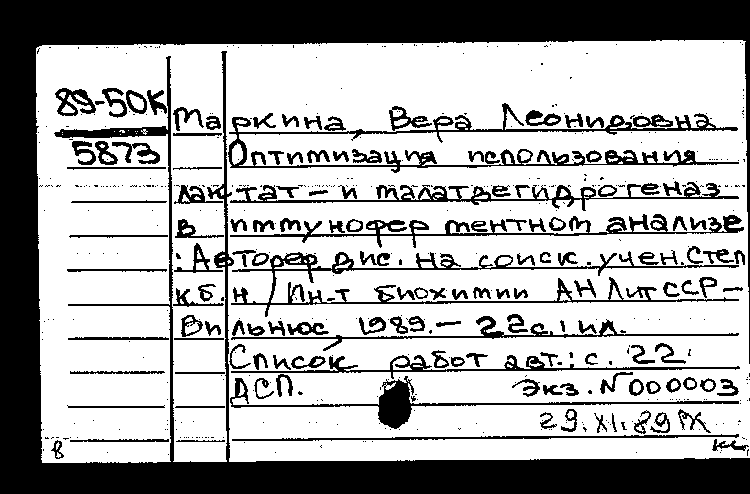 89-50К
Маркина, Вера Леонидовна
5873
Оптимизация использования
лактат - и малатдегидрогеназ
в иммунофер ментном анализе
: Автореф. дис. на соиск. учен. степ
к.б.н. / Ин-т биохимии АН ЛитССР -
Вильнюс, 1989. - 22 с. : ил.
Список работ авт.: с. 22
ДСП. Экз. N 000003
29.XI.89
в